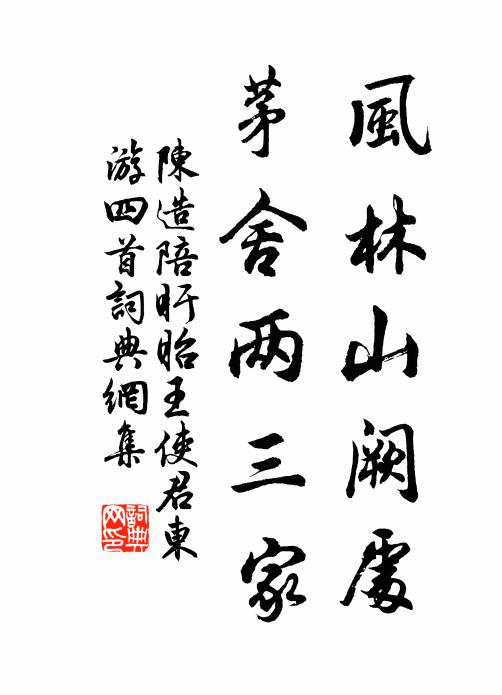 風林山闕處
茅舍两三家
陳造陪盱眙王使君東
游四首詞典網集
詞典网印